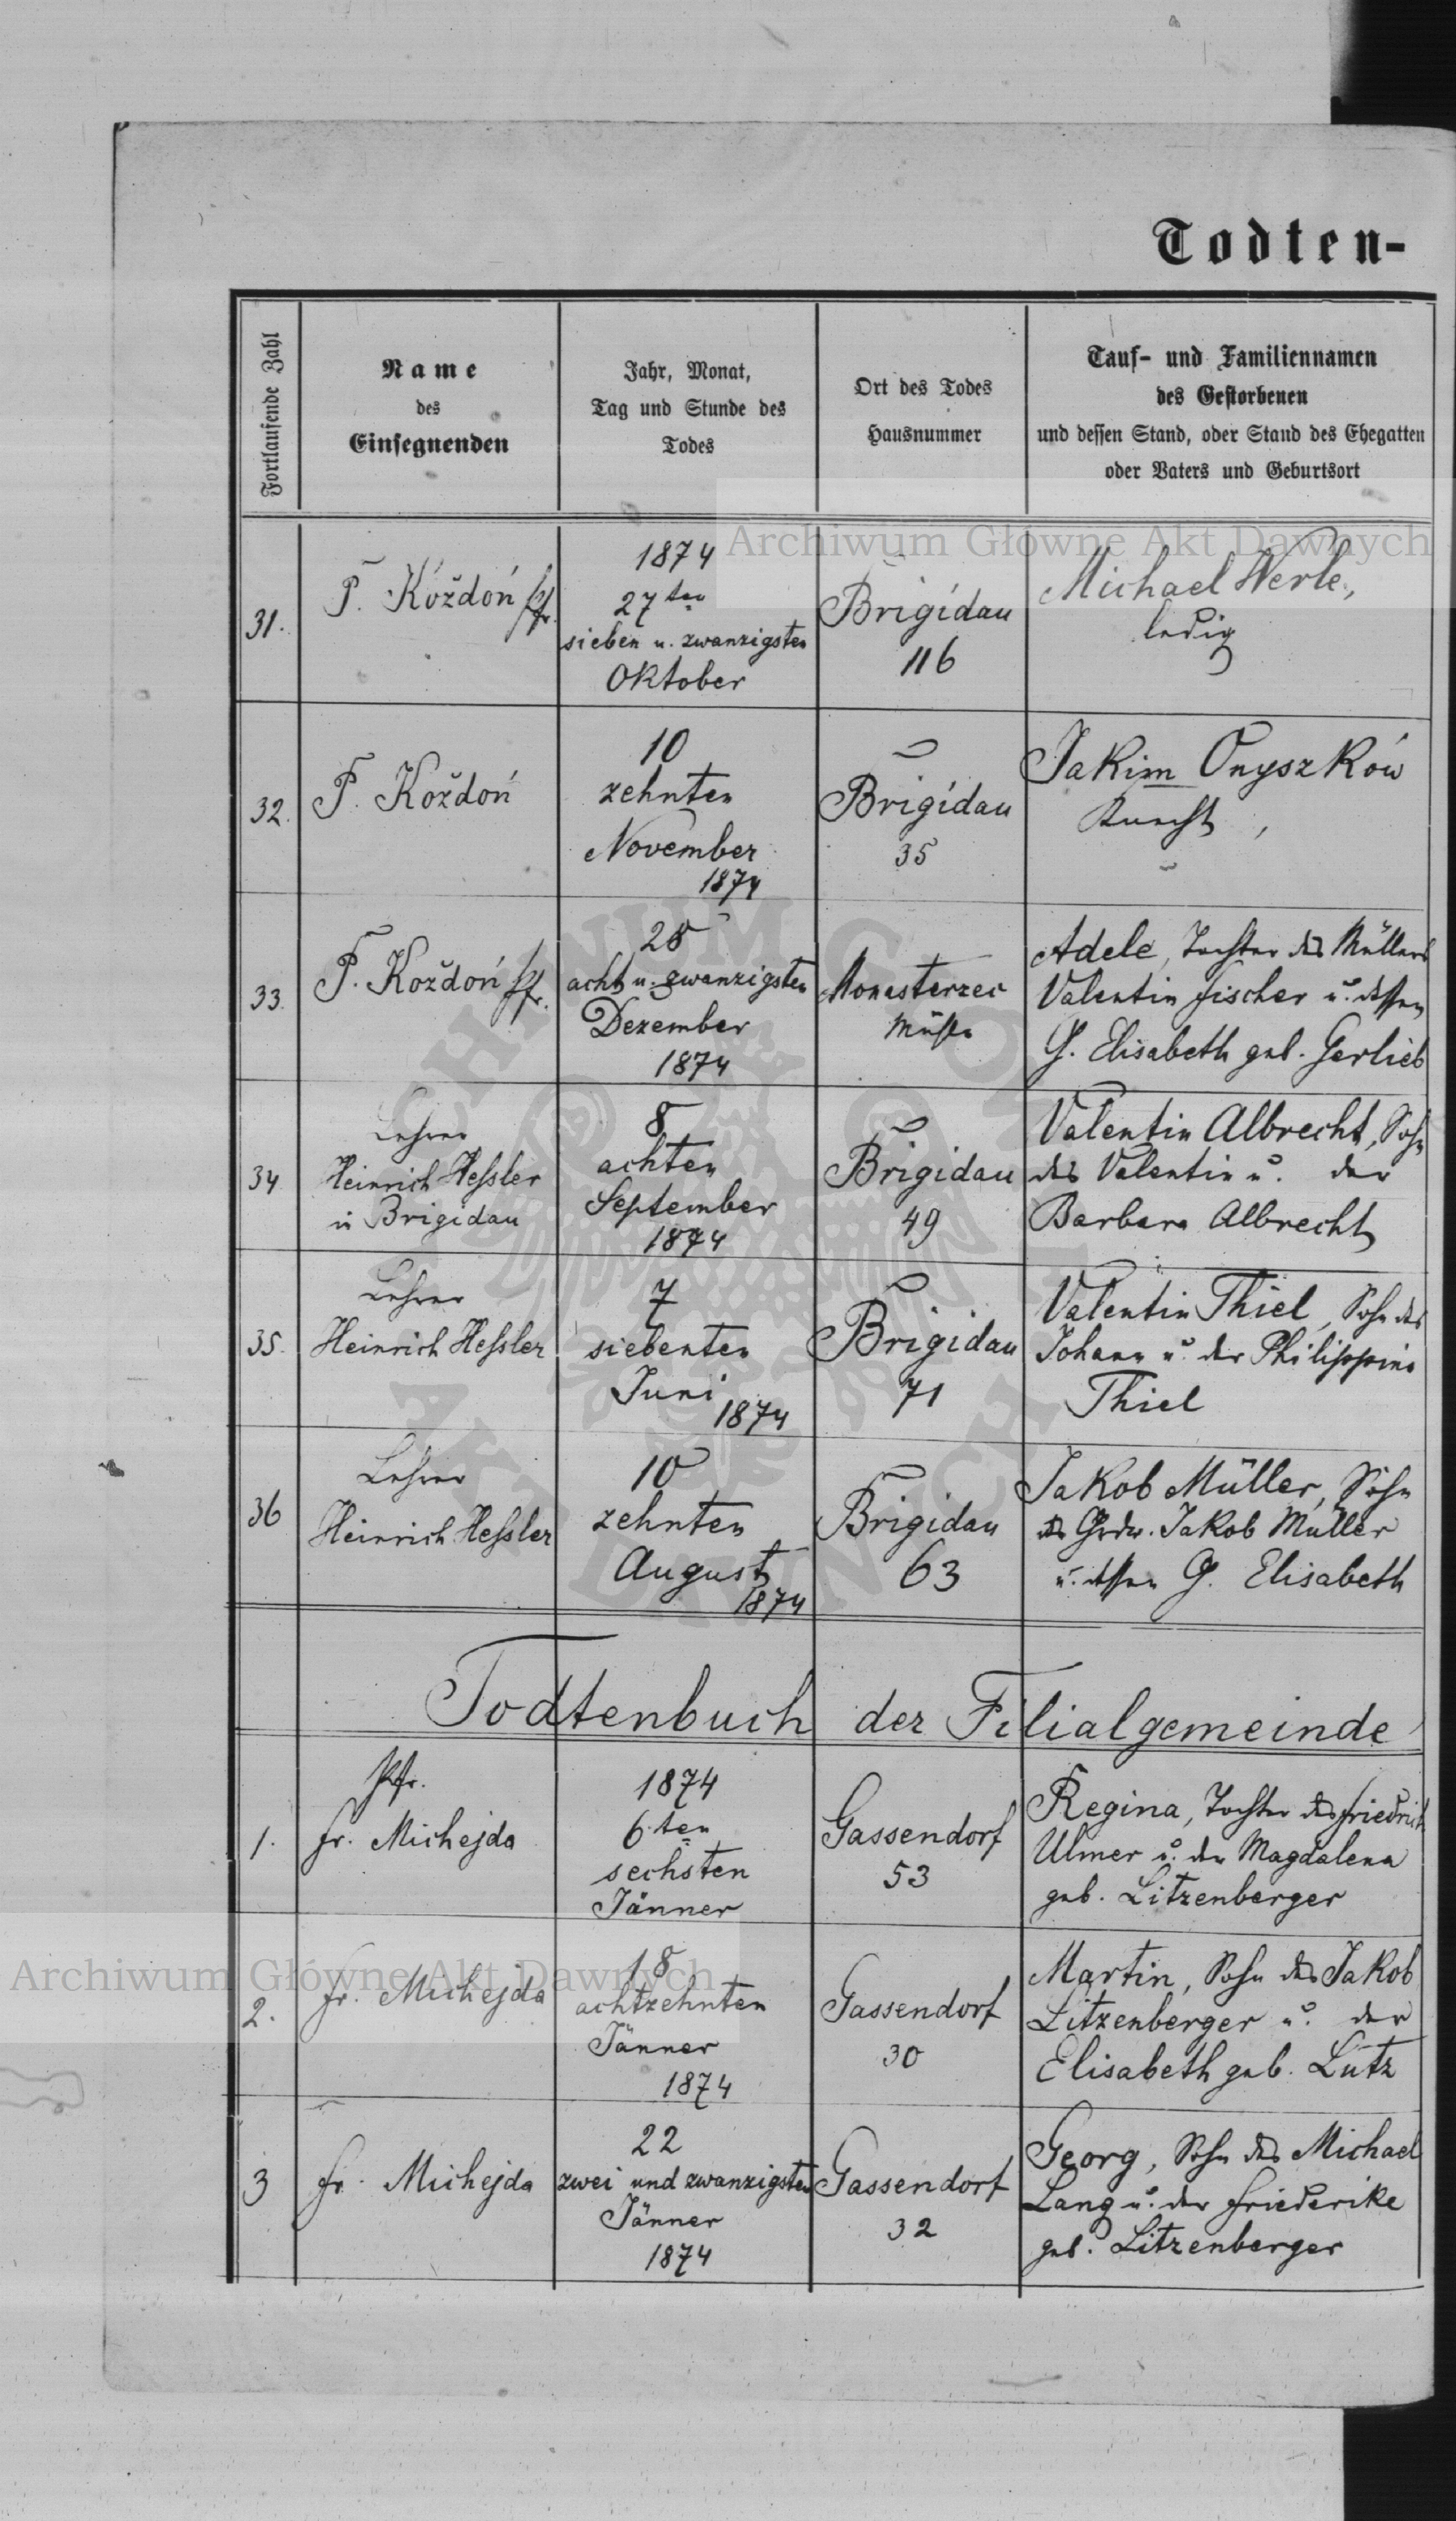 Todten-
Fortlaufende Zahl
Name
des
Einsegnenden
Jahr, Monat,
Tag und Stunde des
Todes
Ort des Todes
Hausnummer
Tauf- und Familiennamen
des Gestorbenen
und dessen Stand, oder Stand des Ehegatten
oder Vaters und Geburtsort
Archiwum Główne Akt Dawnych
31.
P. Kóždoń Pfr.
1874
27ten
sieben u. zwanzigsten
Oktober
Brigidau
116
Michael Werle,
ledig
32.
P. Koždoń
10
zehnten
November
1874
Brigidau
35
Jakim Onyszków
Knecht,
33.
P. Koždoń Pfr.
28
acht u. zwanzigsten
Dezember
1874
Monasterzec
Mühle
Adele, Tochter des Müllers
Valentin Fischer u. dessen
G. Elisabeth geb. Gerlieb
34
Lehrer
Heinrich Heßler
in Brigidau
8
achten
September
1874
Brigidau
49
Valentin Albrecht, Sohn
des Valentin u. der
Barbara Albrecht
35.
Lehrer
Heinrich Heßler
7
siebenten
Juni
1874
Brigidau
71
Valentin Thiel, Sohn des
Johann u. der Philippine
Thiel
36
Lehrer
Heinrich Heßler
10
zehnten
August
1874
Brigidau
63
Jakob Müller, Sohn
des Grdw. Jakob Müller
u. dessen G. Elisabeth
Todtenbuch der Filialgemeinde
1.
Pfr.
Fr. Michejda
1874
6.ten
sechsten
Jänner
Gassendorf
53
Regina, Tochter des Friedrich
Ulmer u. der Magdalena
geb. Litzenberger
Archiwum Główne Akt Dawnych
2.
Fr. Michejda
18
achtzehnten
Jänner
1874
Gassendorf
30
Martin, Sohn des Jakob
Litzenberger u. der
Elisabeth geb. Lutz
3
Fr. Michejda
22
zwei und zwanzigsten
Jänner
1874
Gassendorf
32
Georg, Sohn des Michael
Lang u. der Friederike
geb. Litzenberger